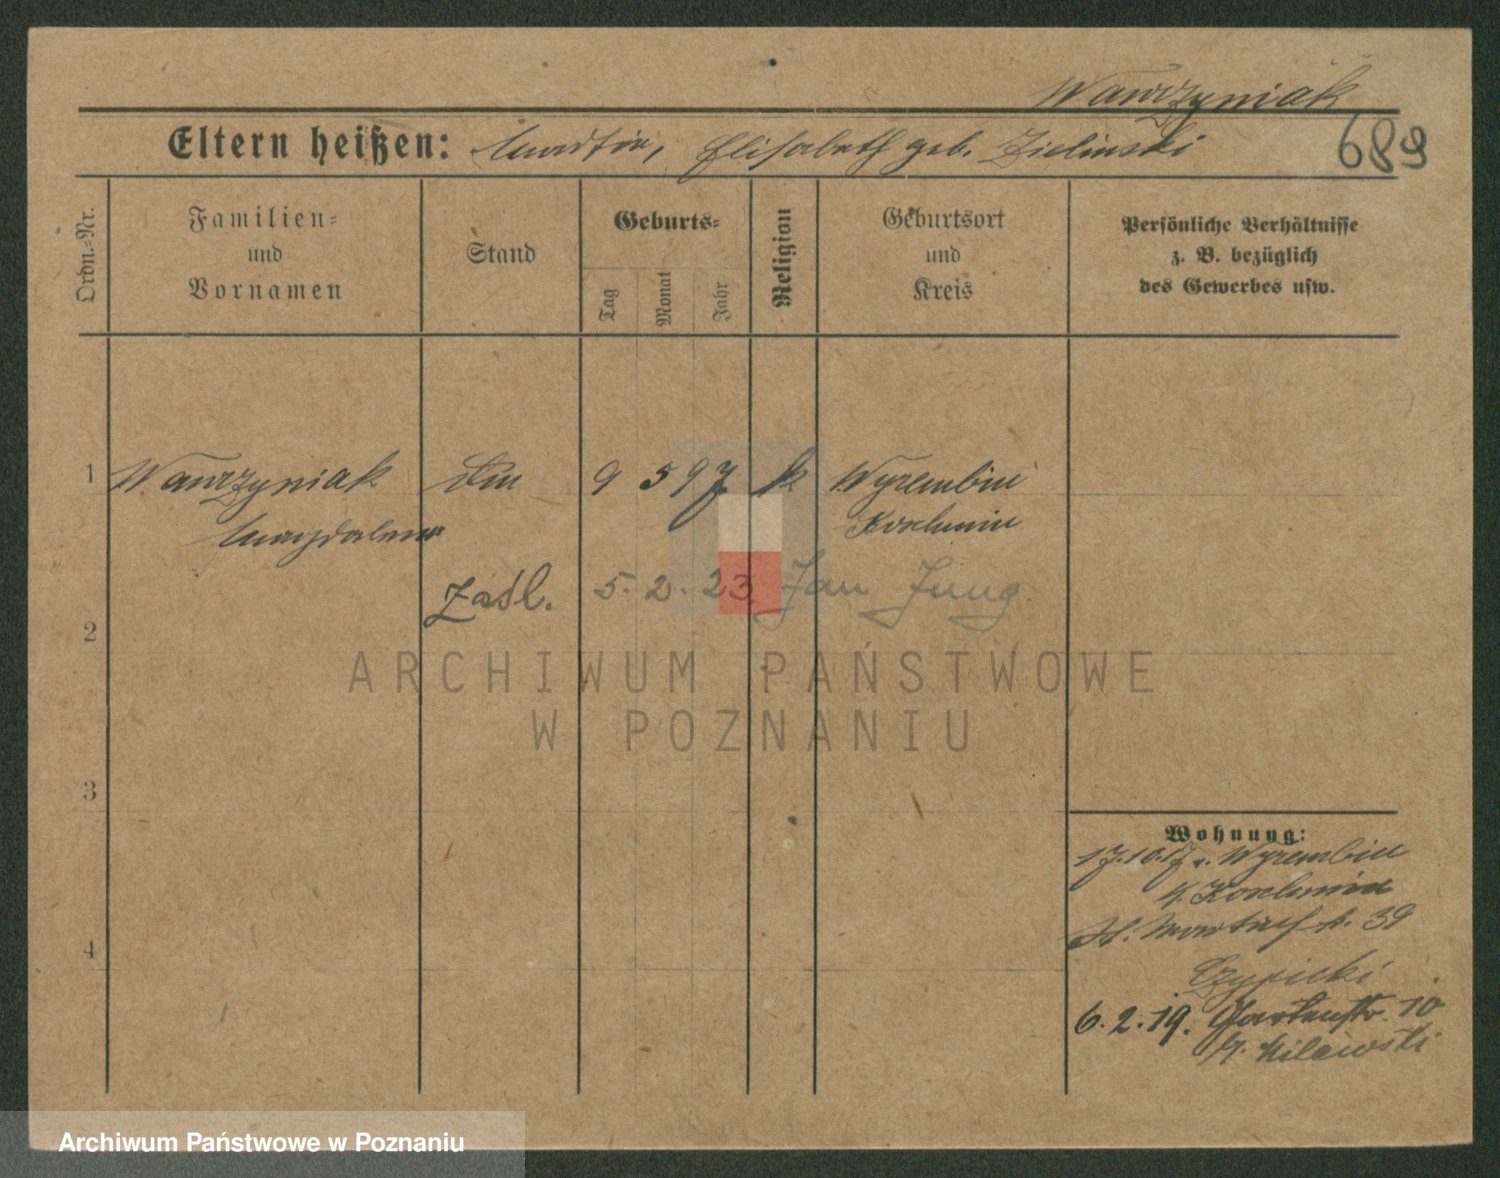 Wawrzyniak
Eltern heißen: Martin, Elisabeth geb. Zielinski
689
Ordn.=Nr.
Familien=
und
Vornamen
Stand
Geburts=
Tag
Monat
Jahr
Religion
Geburtsort
und
Kreis
Persönliche Verhältnisse
z. B. bezüglich
des Gewerbes usw.
1 Wawrzyniak 9 5 97 k Wyrembin
Magdalena Koschmin
zaśl. 5. 2. 23. Jan Jung.
2
ARCHIWUM PAŃSTWOWE
W POZNANIU
3
4
Wohnung:
17.10.17 v. Wyrembin
Koschmin
St. Martinstr. 39
Czypicki
6.2.19. Gartenstr. 10
Milewski
Archiwum Państwowe w Poznaniu